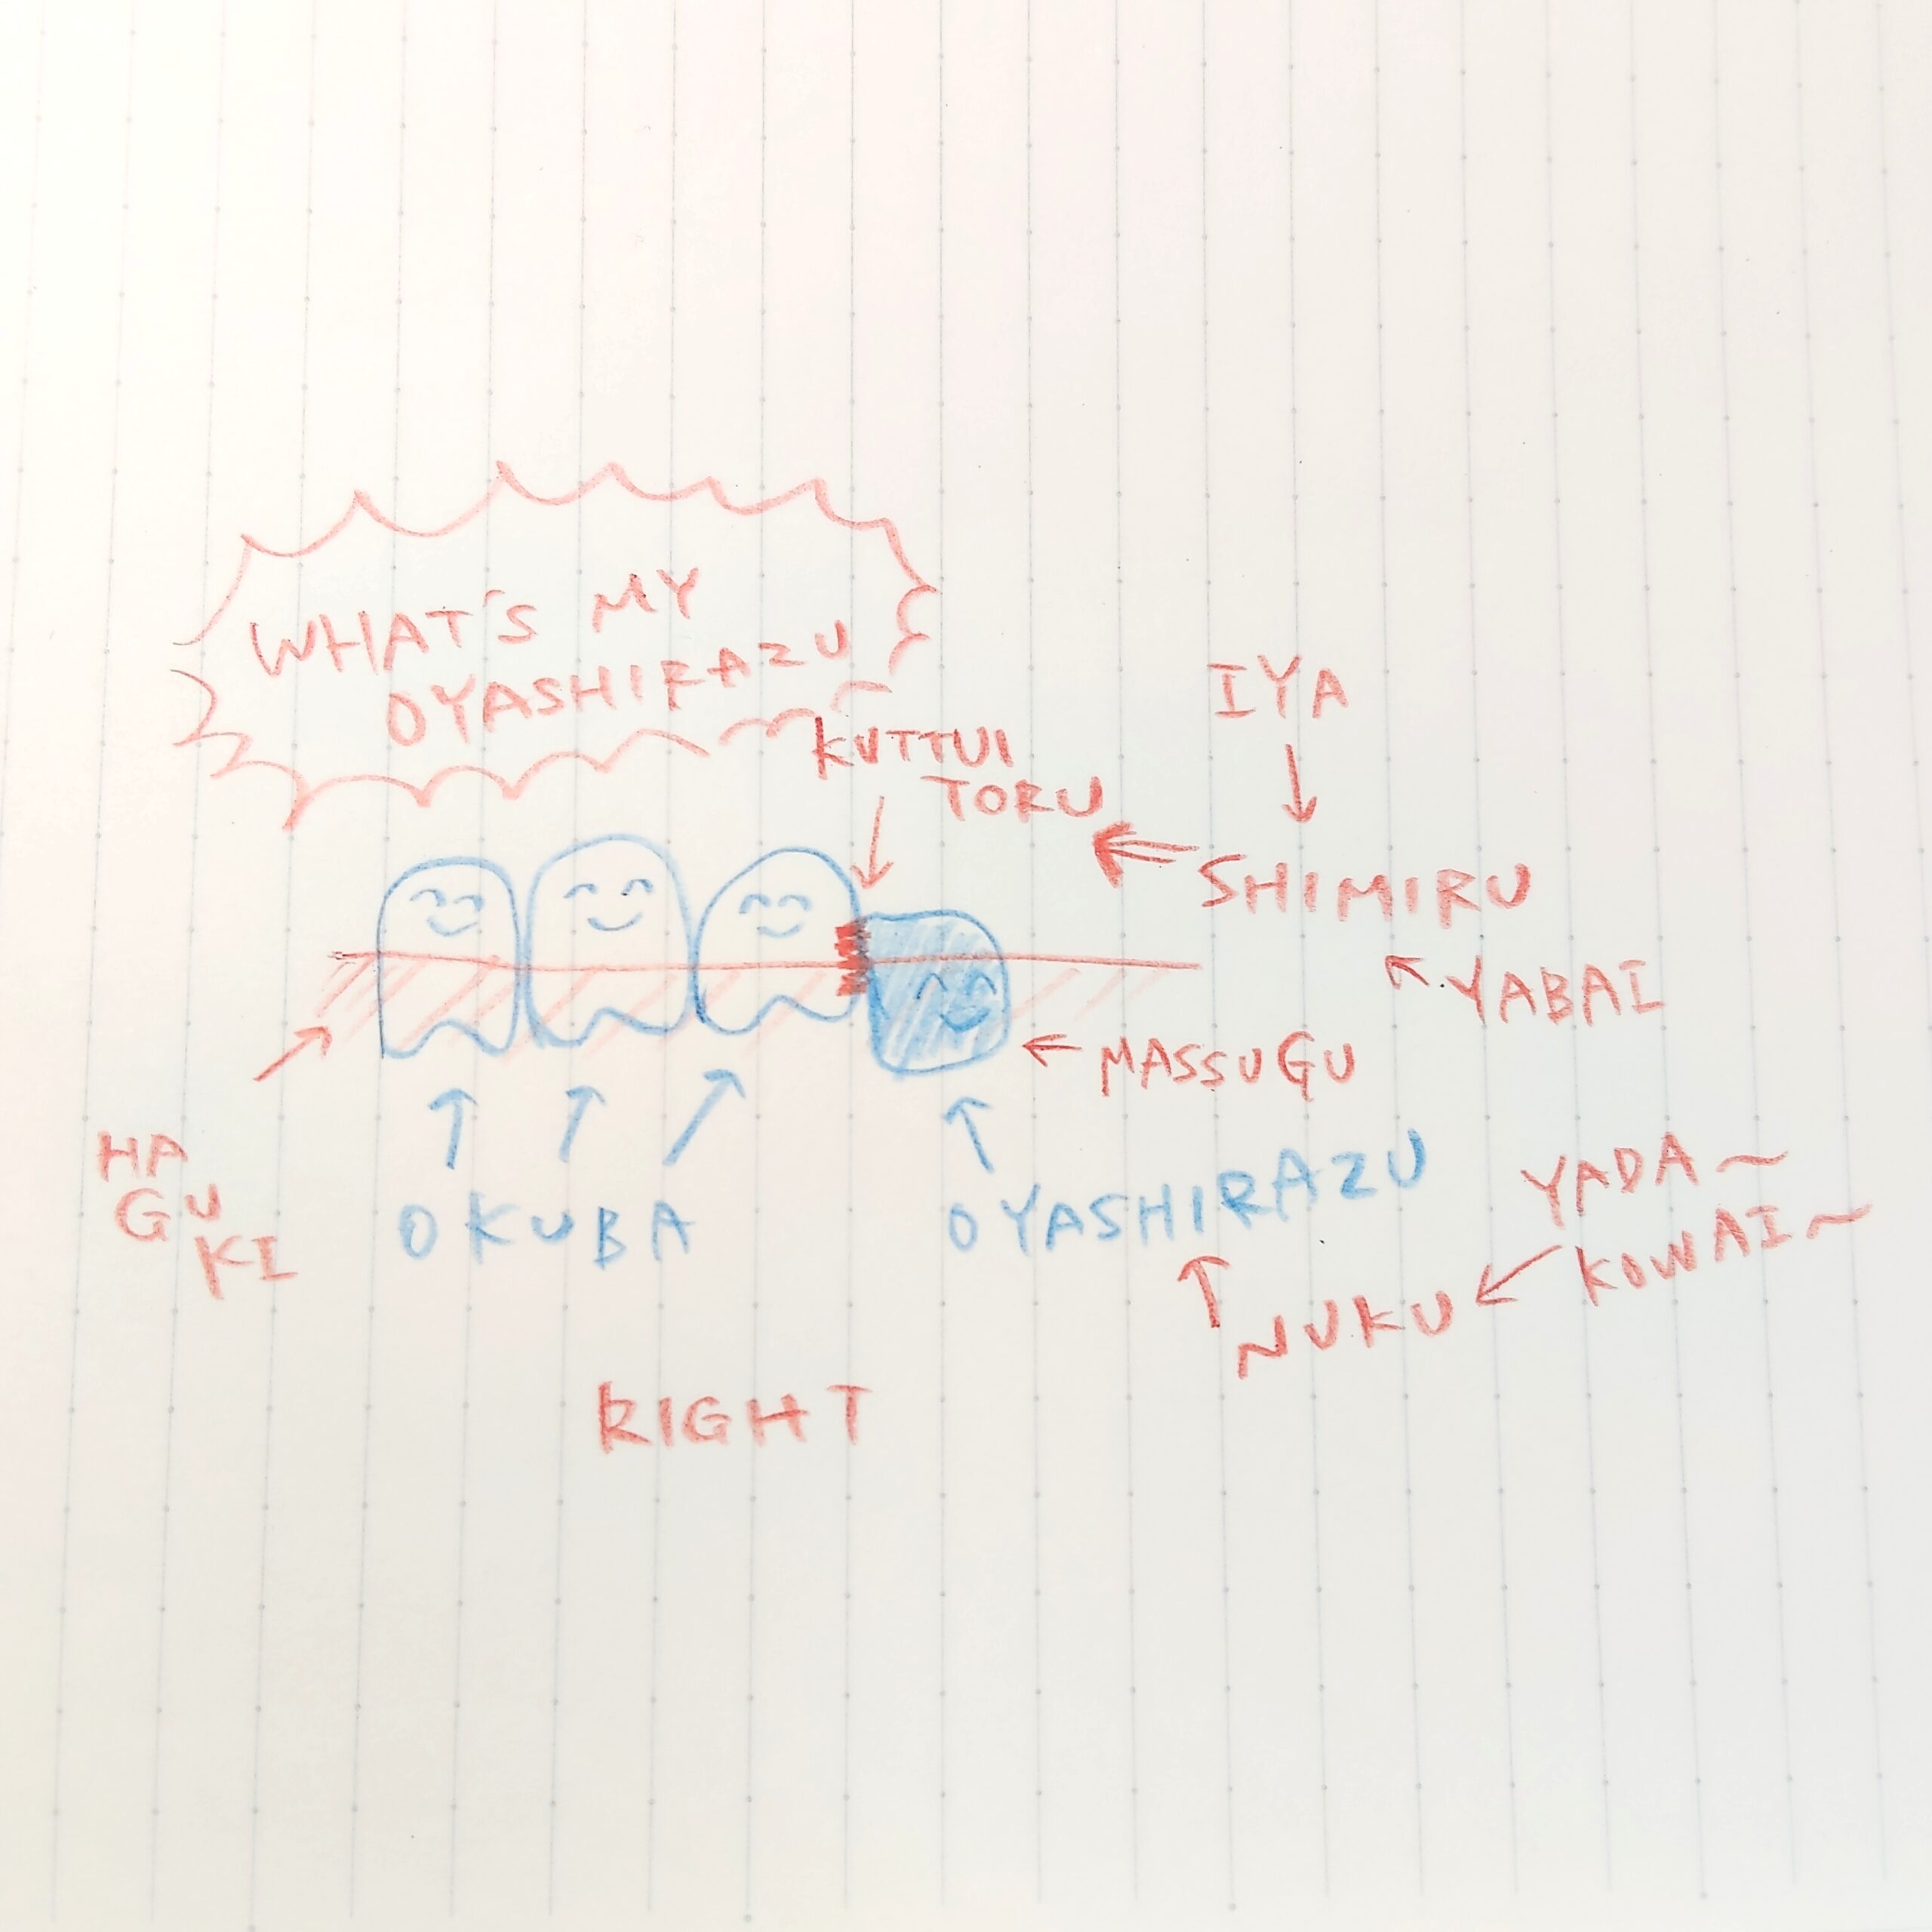 WHAT'S MY
OYASHIRAZU
KUTTUI
TORU
IYA
SHIMIRU
YABAI
MASSUGU
HA
GU
KI
OKUBA
OYASHIRAZU
YADA~
KOWAI~
NUKU
RIGHT